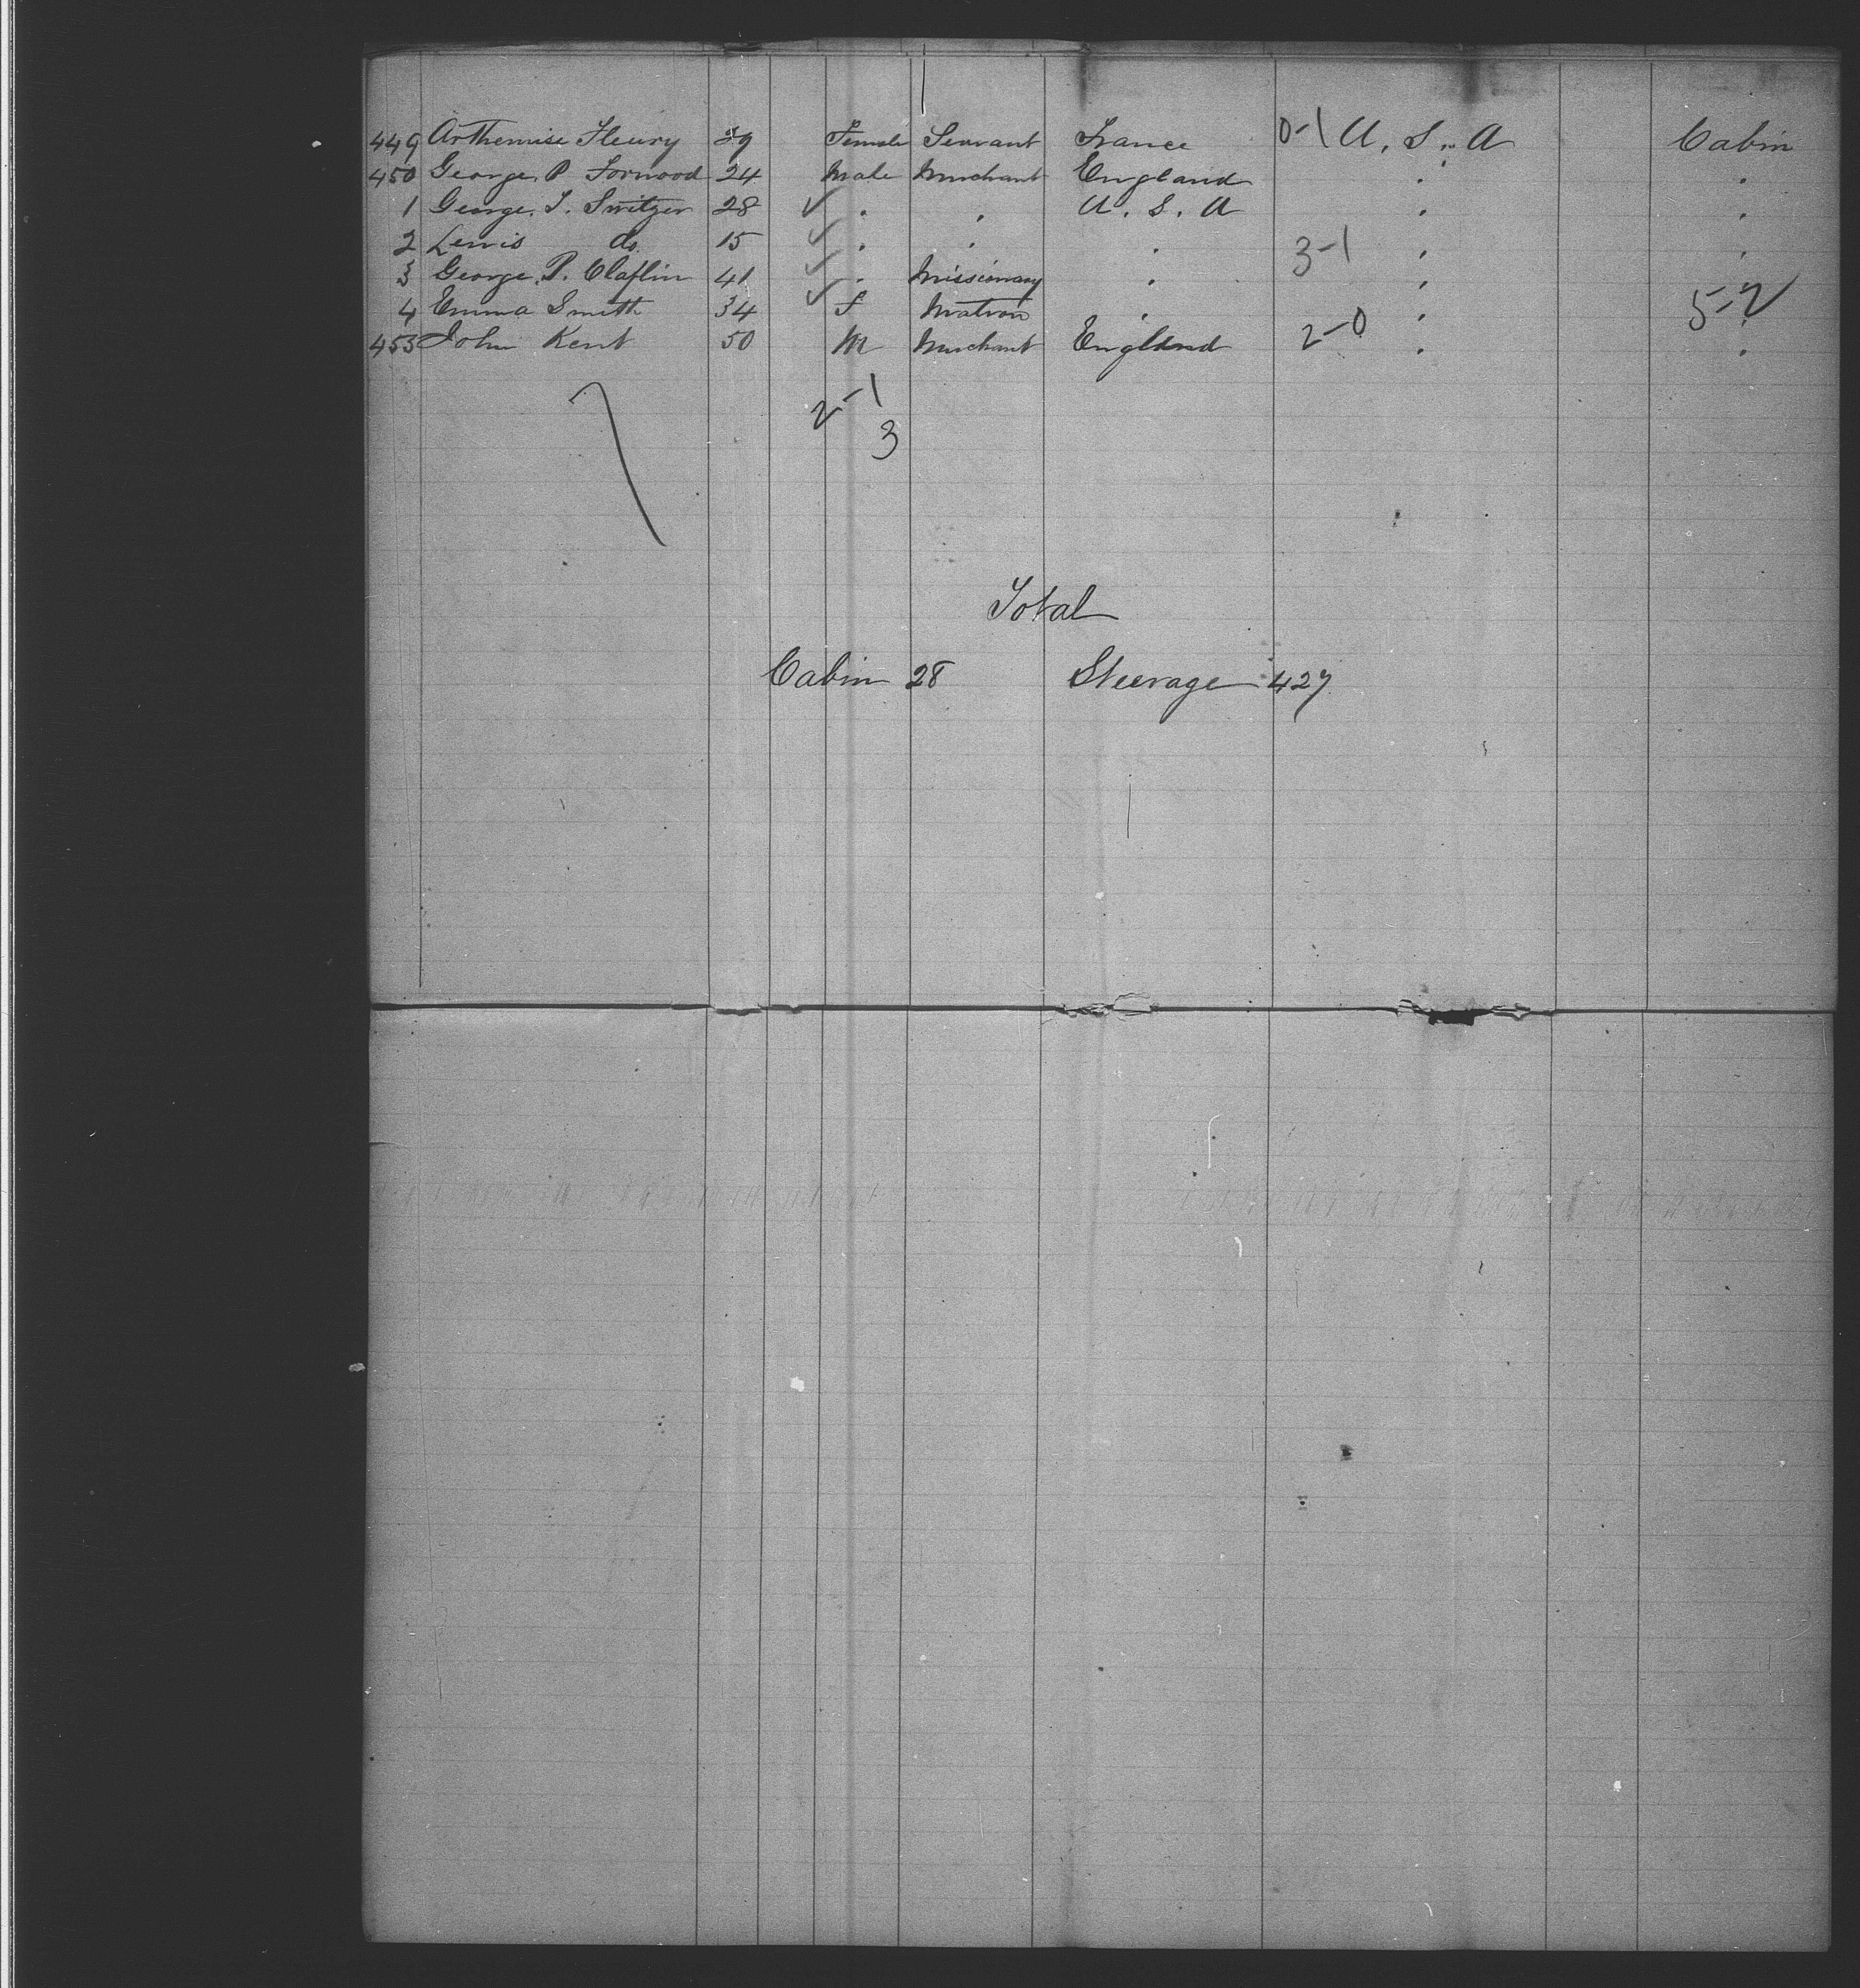 449 Arthemise Fleury 39 Female Servant France 0-1 U. S. A Cabin
450 George P Forwood 24 Male Merchant England " "
1 George. S. Switzer 28 ✓ " " U. S. A " "
2 Lewis do. 15 ✓ " " " 3-1 " "
3 George. P. Claflin 41 ✓ " Missionary " "
4 Emma Smith 34 ✓ F Matron " " 5-2
455 John Kent 50 M Merchant England 2-0 " "
7 2-1
3
Total
Cabin 28 Steerage 427